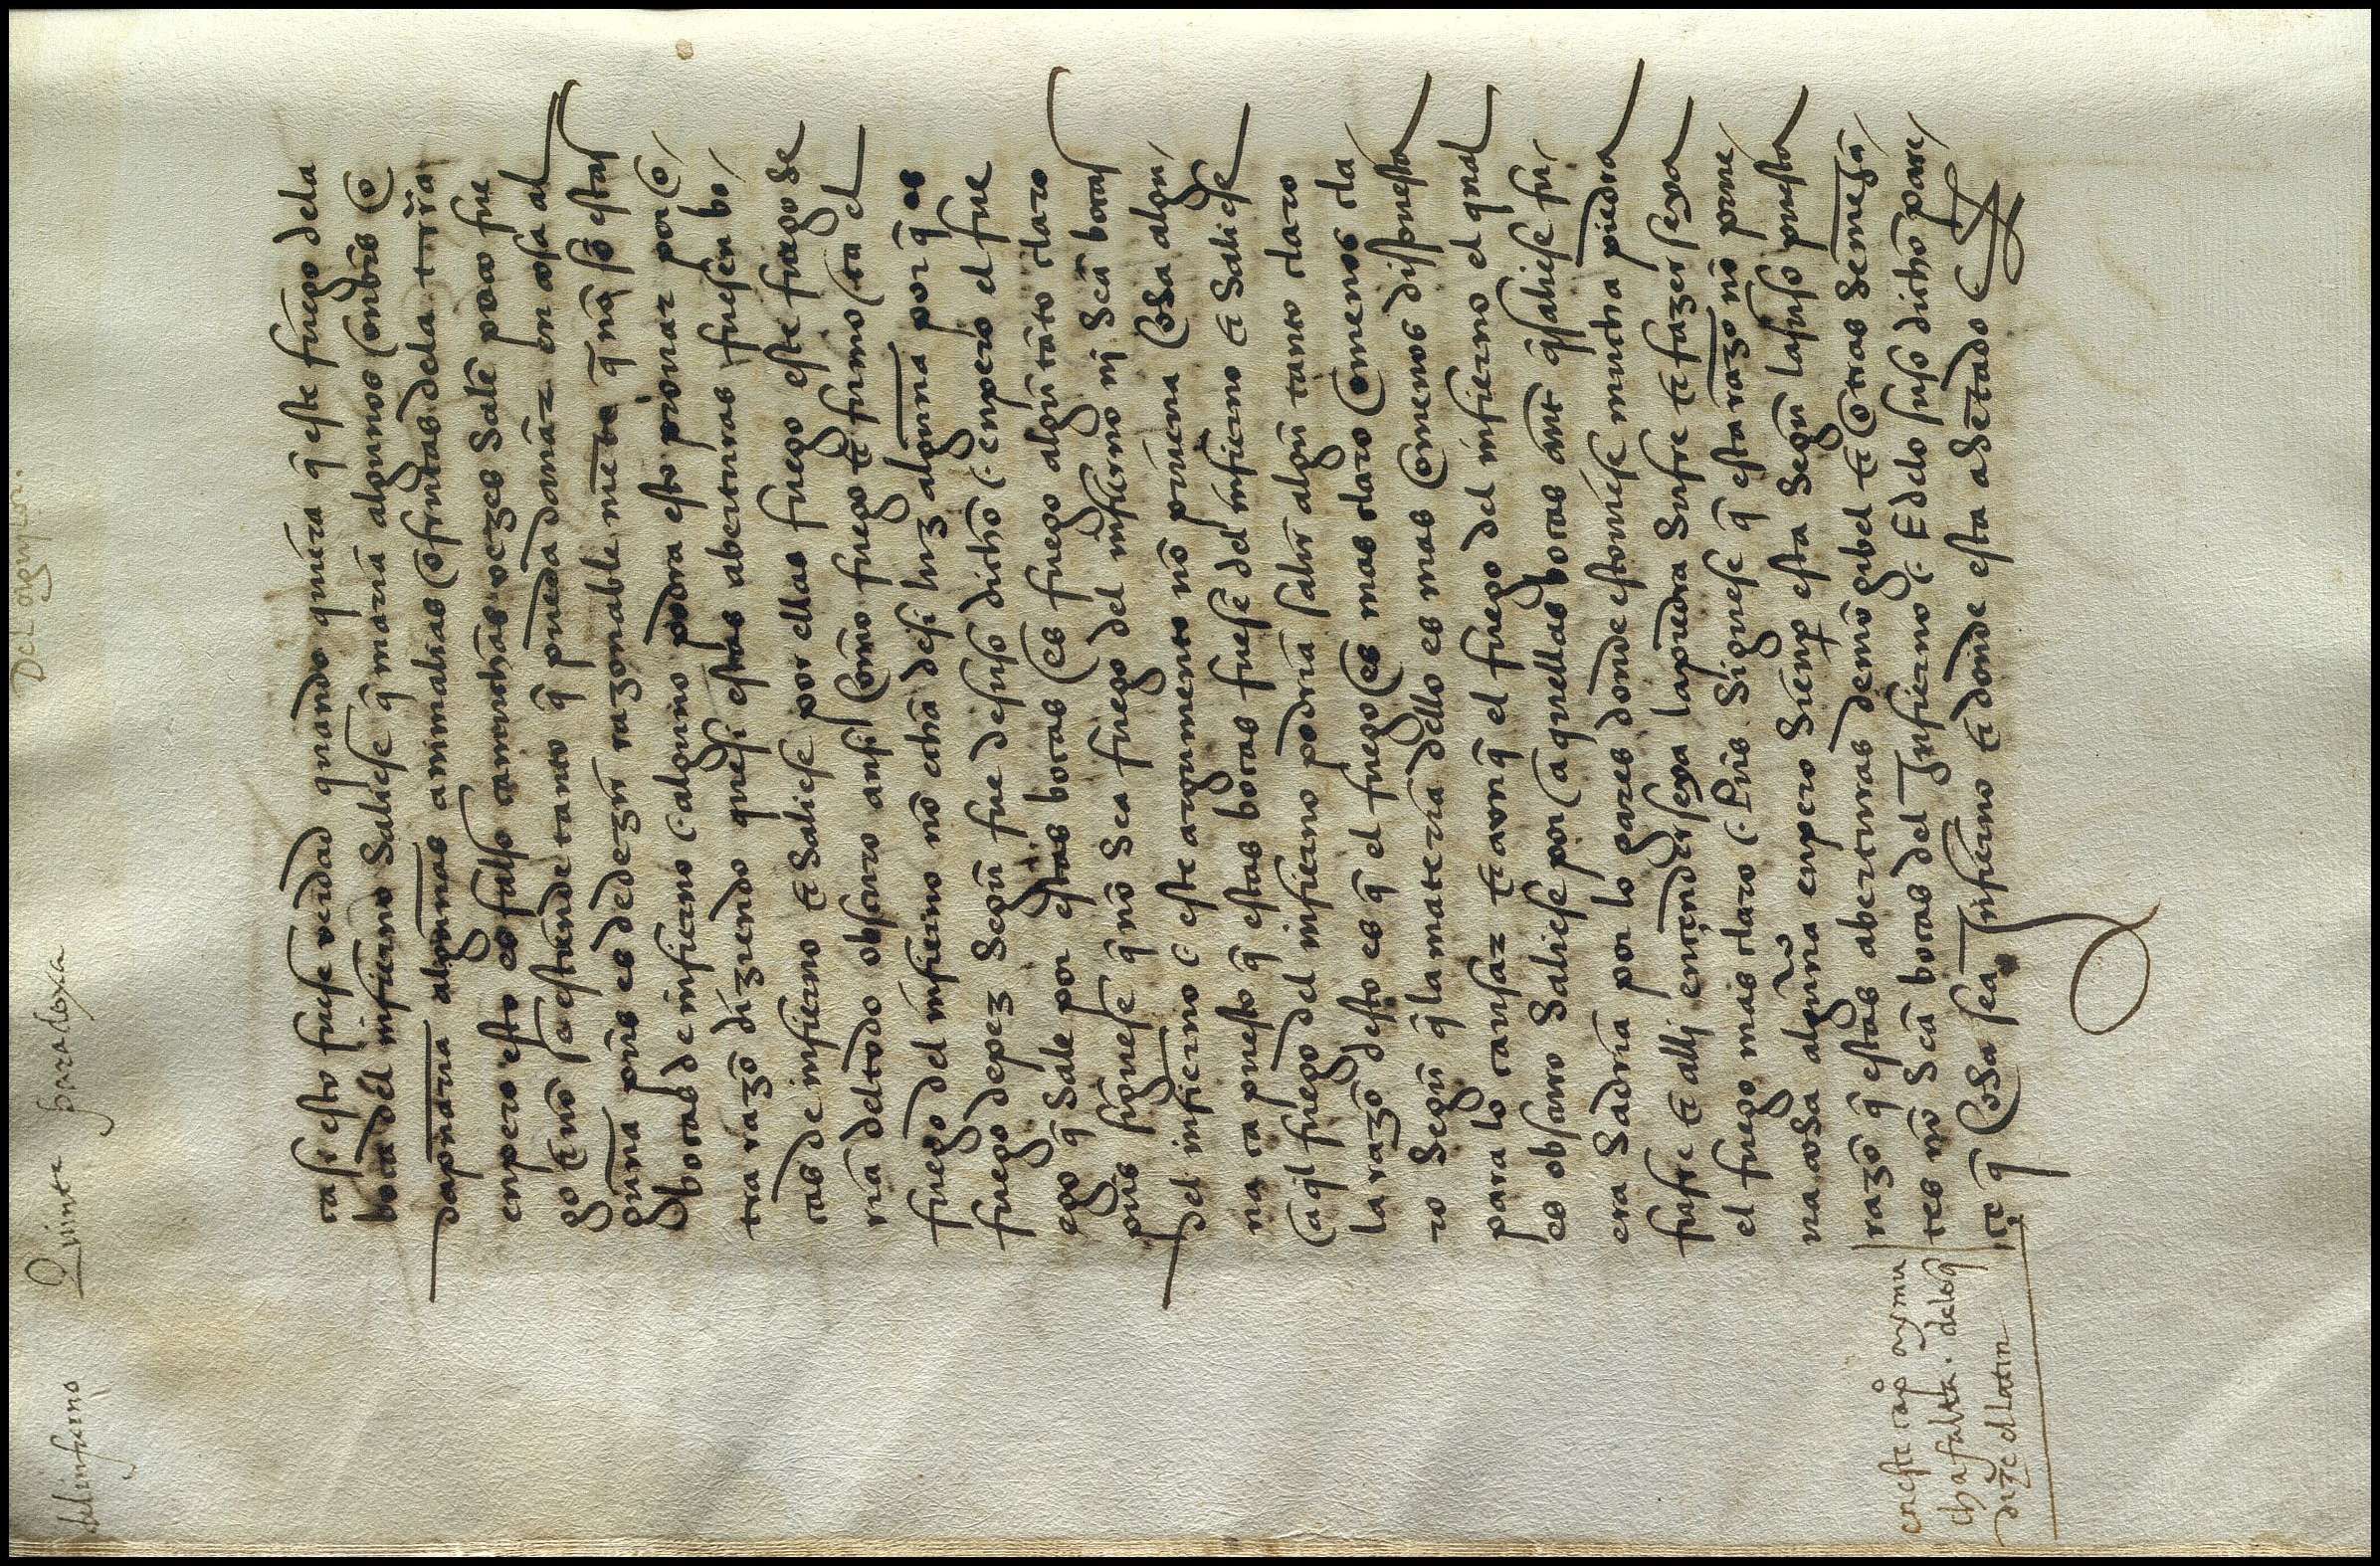 del infierno Quinta paradoxa
Del ogupto.
ca si esto fuese verdad quando quiera q̃ este fuego dela
boca del infierno saliese q̃maria algunos honbr̃s co
sapnaria algunas animalias cofrutas dela trr̃a
enpero esto es falso ca muchas vezes sale poco fue
go e no se estiende tanto q̃ pueda dañar en cosa al
guna pues es de dezir razonable mẽte q̃ no so estas
bocas de infierno alguno podra esto prouar por o
tra razõ diziendo que si estas aberturas fuesen bo
cas de infierno e saliese por ellas fuego este fuego se
ria del todo obscuro ansi como fuego e fumo ca el
fuego del infierno no echa de si luz alguna por q̃ es
fuego de pez segũ fue de suso dicho enpero el fue
ego q̃ sale por estas bocas es fuego algũ tãto claro
pues siguese q̃ no sea fuego del infierno nj seã bocas
del infierno este argumento no prueua cosa algu
na ca puesto q̃ estas bocas fuese del infierno e saliese
aq̃l fuego del infierno podria salir algũ tanto claro
la razõ desto es q̃ el fuego es mas claro o menos cla
ro segũ q̃ la materia dello es mas o menos dispuesta
para lo causar e aunq̃ el fuego del infierno el qual
es obscuro saliese por aquellas bocas ant q̃ saliese fu
era sadria por lo gares donde estouiese mucha piedra
sufre e alli encenderseya la piedra sufre e fazer seya
el fuego mas claro Pues siguese q̃ esta razõ nõ prue
ua cosa alguna enpero sienp̃ esta segũ la suso puesta
razõ q̃ estas aberturas de mõgibel e otras semejã
tes nõ seã bocas del Infierno E delo suso dicho pare
ce q̃ cosa sea Infierno e donde esta asẽtado
en este capº ay mu
cha falta. delo q̃
dize el latin